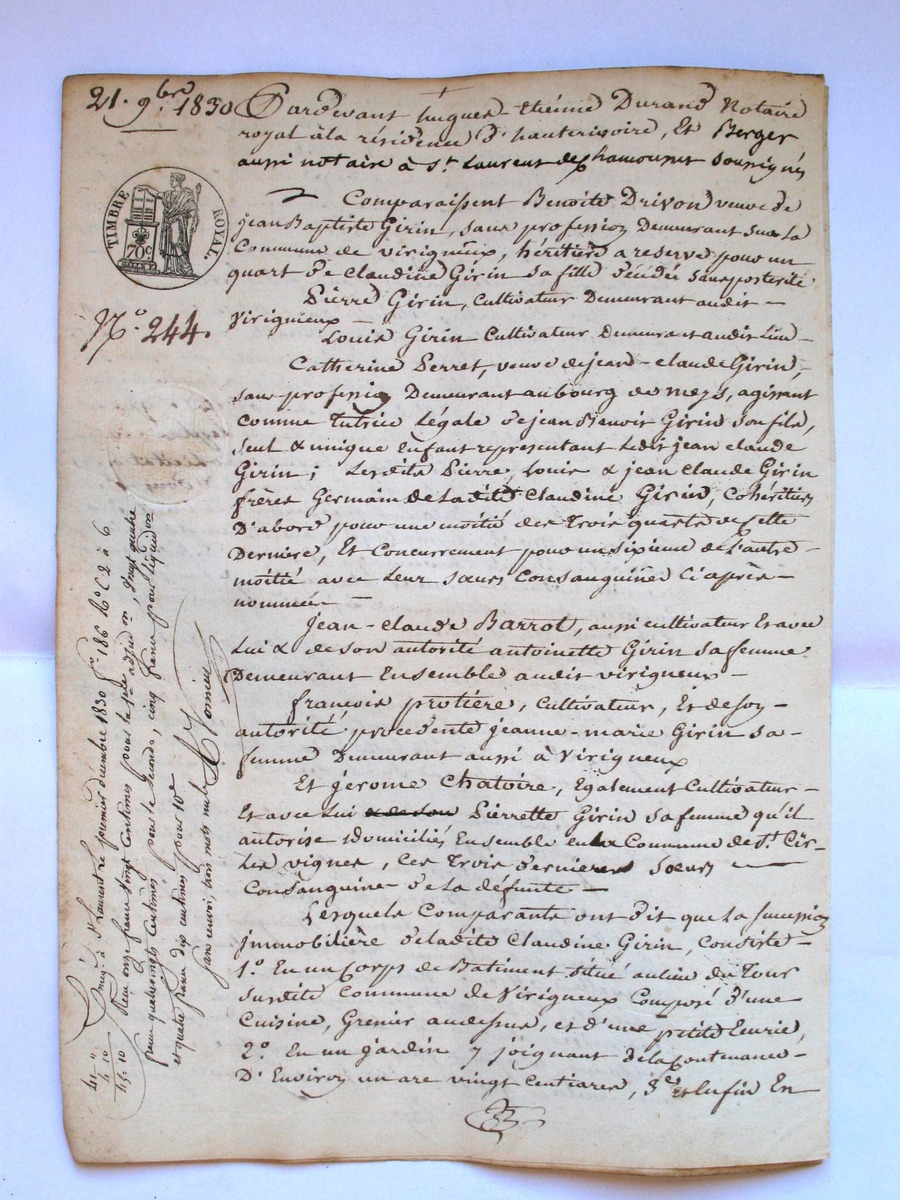 21. 9bre 1830
Pardevant hugues-Etienne Durand Notaire
royal à la résidence d'hauterivoire, Et Berger
aussi notaire à St. Laurent de chamousset soussignés
TIMBRE ROYAL
70c
Comparaissent Benoite Drivon veuve de
jean Baptiste Girin, sans profession Demeurant sur la
Commune de virigneux, héritière a reserve pour un
quart de Claudine Girin sa fille décédée sans posterité
Pierre Girin, cultivateur Demeurant audit
Virignieux
No. 244.
Louis Girin Cultivateur Demeurant audit Lieu
Catherine Perret, veuve de jean-claude Girin,
sans profession Demeurant au bourg de meys, agissant
comme tutrice Légale de jean Benoit Girin son fils,
seul & unique enfant representant Ledit jean claude
Girin; Lesdits Pierre, Louis & jean Claude Girin
frères Germain de Ladite Claudine Girin, Cohéritiers
D'abord pour une moitié des trois quarts de cette
Dernière, Et Concurrement pour un sixieme de l'autre
moitié avec Leur sœurs Consanguines ci après
nommées
jean-claude Barrot, aussi cultivateur Et avec
Lui & de son autorité antoinette Girin sa femme
Demeurant Ensemble audit virigneux
françois protière, Cultivateur, Et de son
autorité, procedente jeanne-marie Girin sa
femme Demeurant aussi à Virigneux
Et jérome Chatoire, Egalement Cultivateur
Et avec lui & de son Pierrette Girin sa femme qu'il
autorise Domiciliés Ensemble en la Commune de St. Cir
Les vignes, Ces trois dernieres sœurs
Consanguine de la défunte
Lesquels Comparants ont dit que la succession
immobilière de ladite Claudine Girin, Consiste
1o. En un Corps de Batiment situé au lieu du Tour
susdite Commune de Virigneux Composé d'une
Cuisine, Grenier audessus, et d'une petite Ecurie,
2o. En un jardin y joignant de la Contenance
D'Environ un are vingt Centiares, 3o. et Enfin En
Enregé. à St. Laurent le premier décembre 1830 fo. 186 Ro. C 2 à 6
Reçu onze francs vingt centimes pour la 1re adjudon, vingt quatre
francs quatrevingts centimes pour la seconde, cinq francs pour liquidon
et quatre francs dix centimes pour 10e
sans renvoi, trois mots nuls
41 "
4 10
45. 10